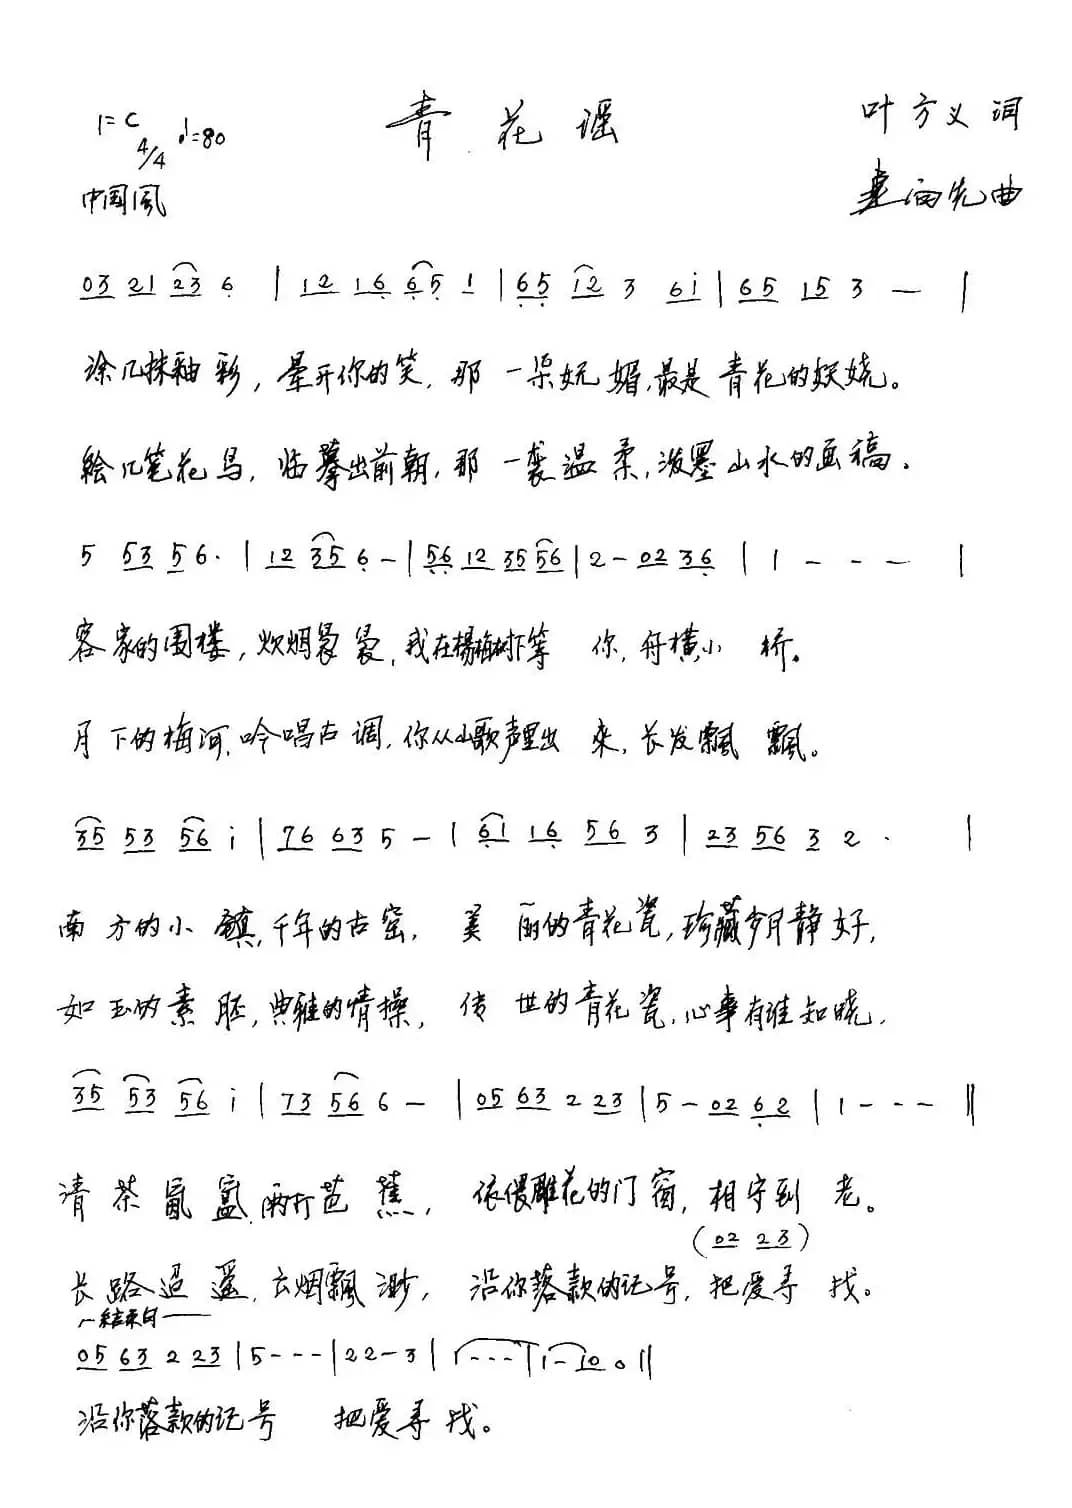 1=C 4/4 ♩=80
青花谣
叶方义 词
中国風
先曲
03 21 23 6 | 12 16 65 1 | 65 12 3 6i | 65 15 3 — |
涂几抹釉彩，晕开你的笑，那一朵妩媚，最是青花的妖娆。
繪几笔花鸟，临摹出前朝，那一袭温柔，泼墨山水的画稿。
5 53 56· | 12 35 6 - | 56 12 35 56 | 2 - 02 36 | 1 - - - |
客家的围楼，炊烟袅袅，我在楊梅树下等你，舟横小桥。
月下的梅河，吟唱古调，你从山歌声里出來，长发飄飄。
35 53 56 i | 76 63 5 - | 61 16 56 3 | 23 56 3 2 · |
南方的小镇，千年的古窑，美丽的青花瓷，珍藏岁月静好，
如玉的素胚，典雅的情操，传世的青花瓷，心事有谁知晓，
35 53 56 i | 73 56 6 - | 05 63 2 23 | 5 - 02 62 | 1 - - - ||
清茶氤氲，雨打芭蕉，依偎雕花的门窗，相守到老。
(02 23)
长路迢遥，云烟飄渺，沿你落款的记号，把爱寻找。
结束句
05 63 2 23 | 5 - - - | 22 - 3 | 1 - - - | 1 - 10 0 ||
沿你落款的记号 把爱寻找。